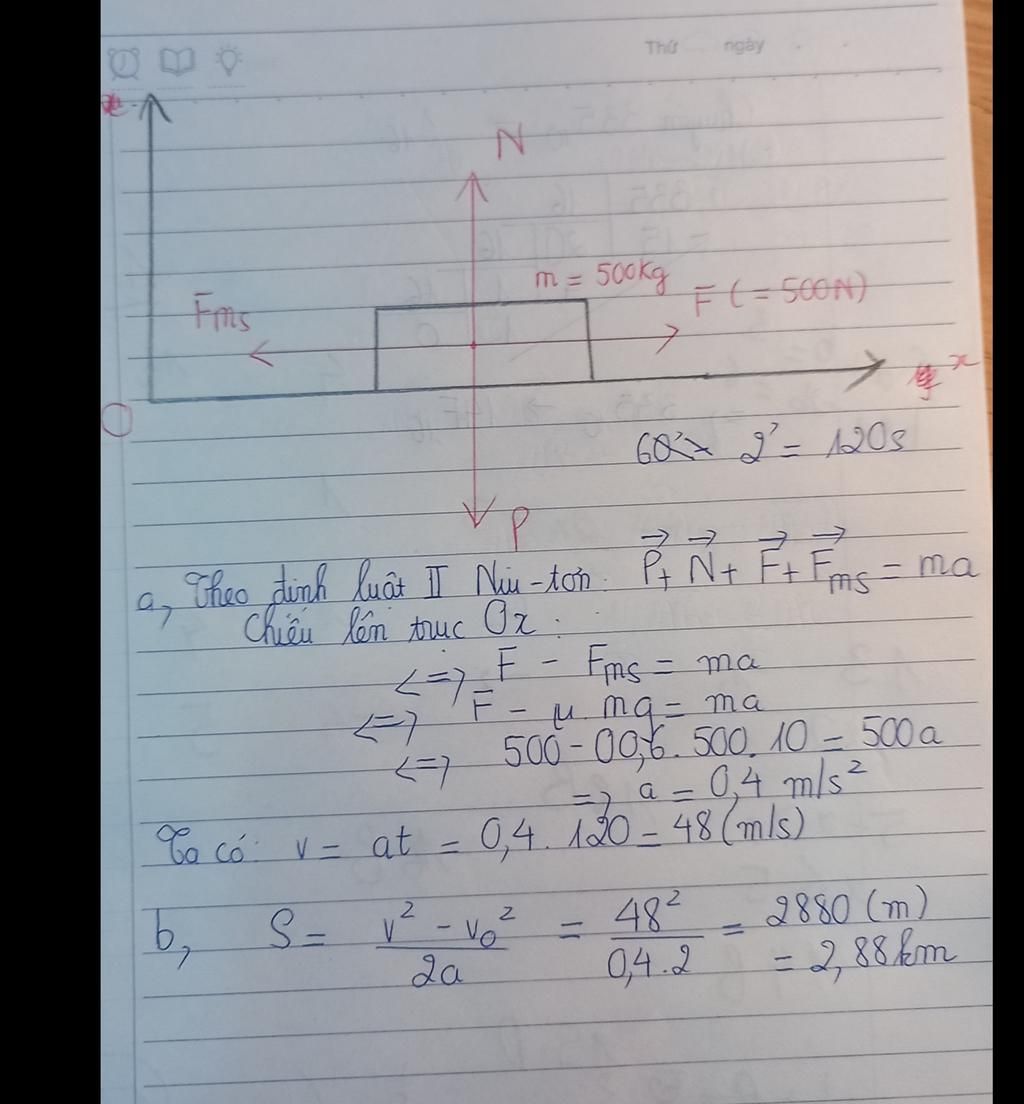 Thứ ngày
N
m = 500kg
F (= 500N)
Fms
x
O
60 x 2' = 120s
P
a, Theo định luật II Niu-tơn. P + N + F + Fms = ma
Chiếu lên trục Ox:
<=> F - Fms = ma
<=> F - μ. mg = ma
<=> 500 - 00,6. 500. 10 = 500a
=> a = 0,4 m/s²
Ta có: v = at = 0,4. 120 = 48 (m/s)
b, S = (v² - v₀²)/2a = 48²/0,4.2 = 2880 (m)
= 2,88km